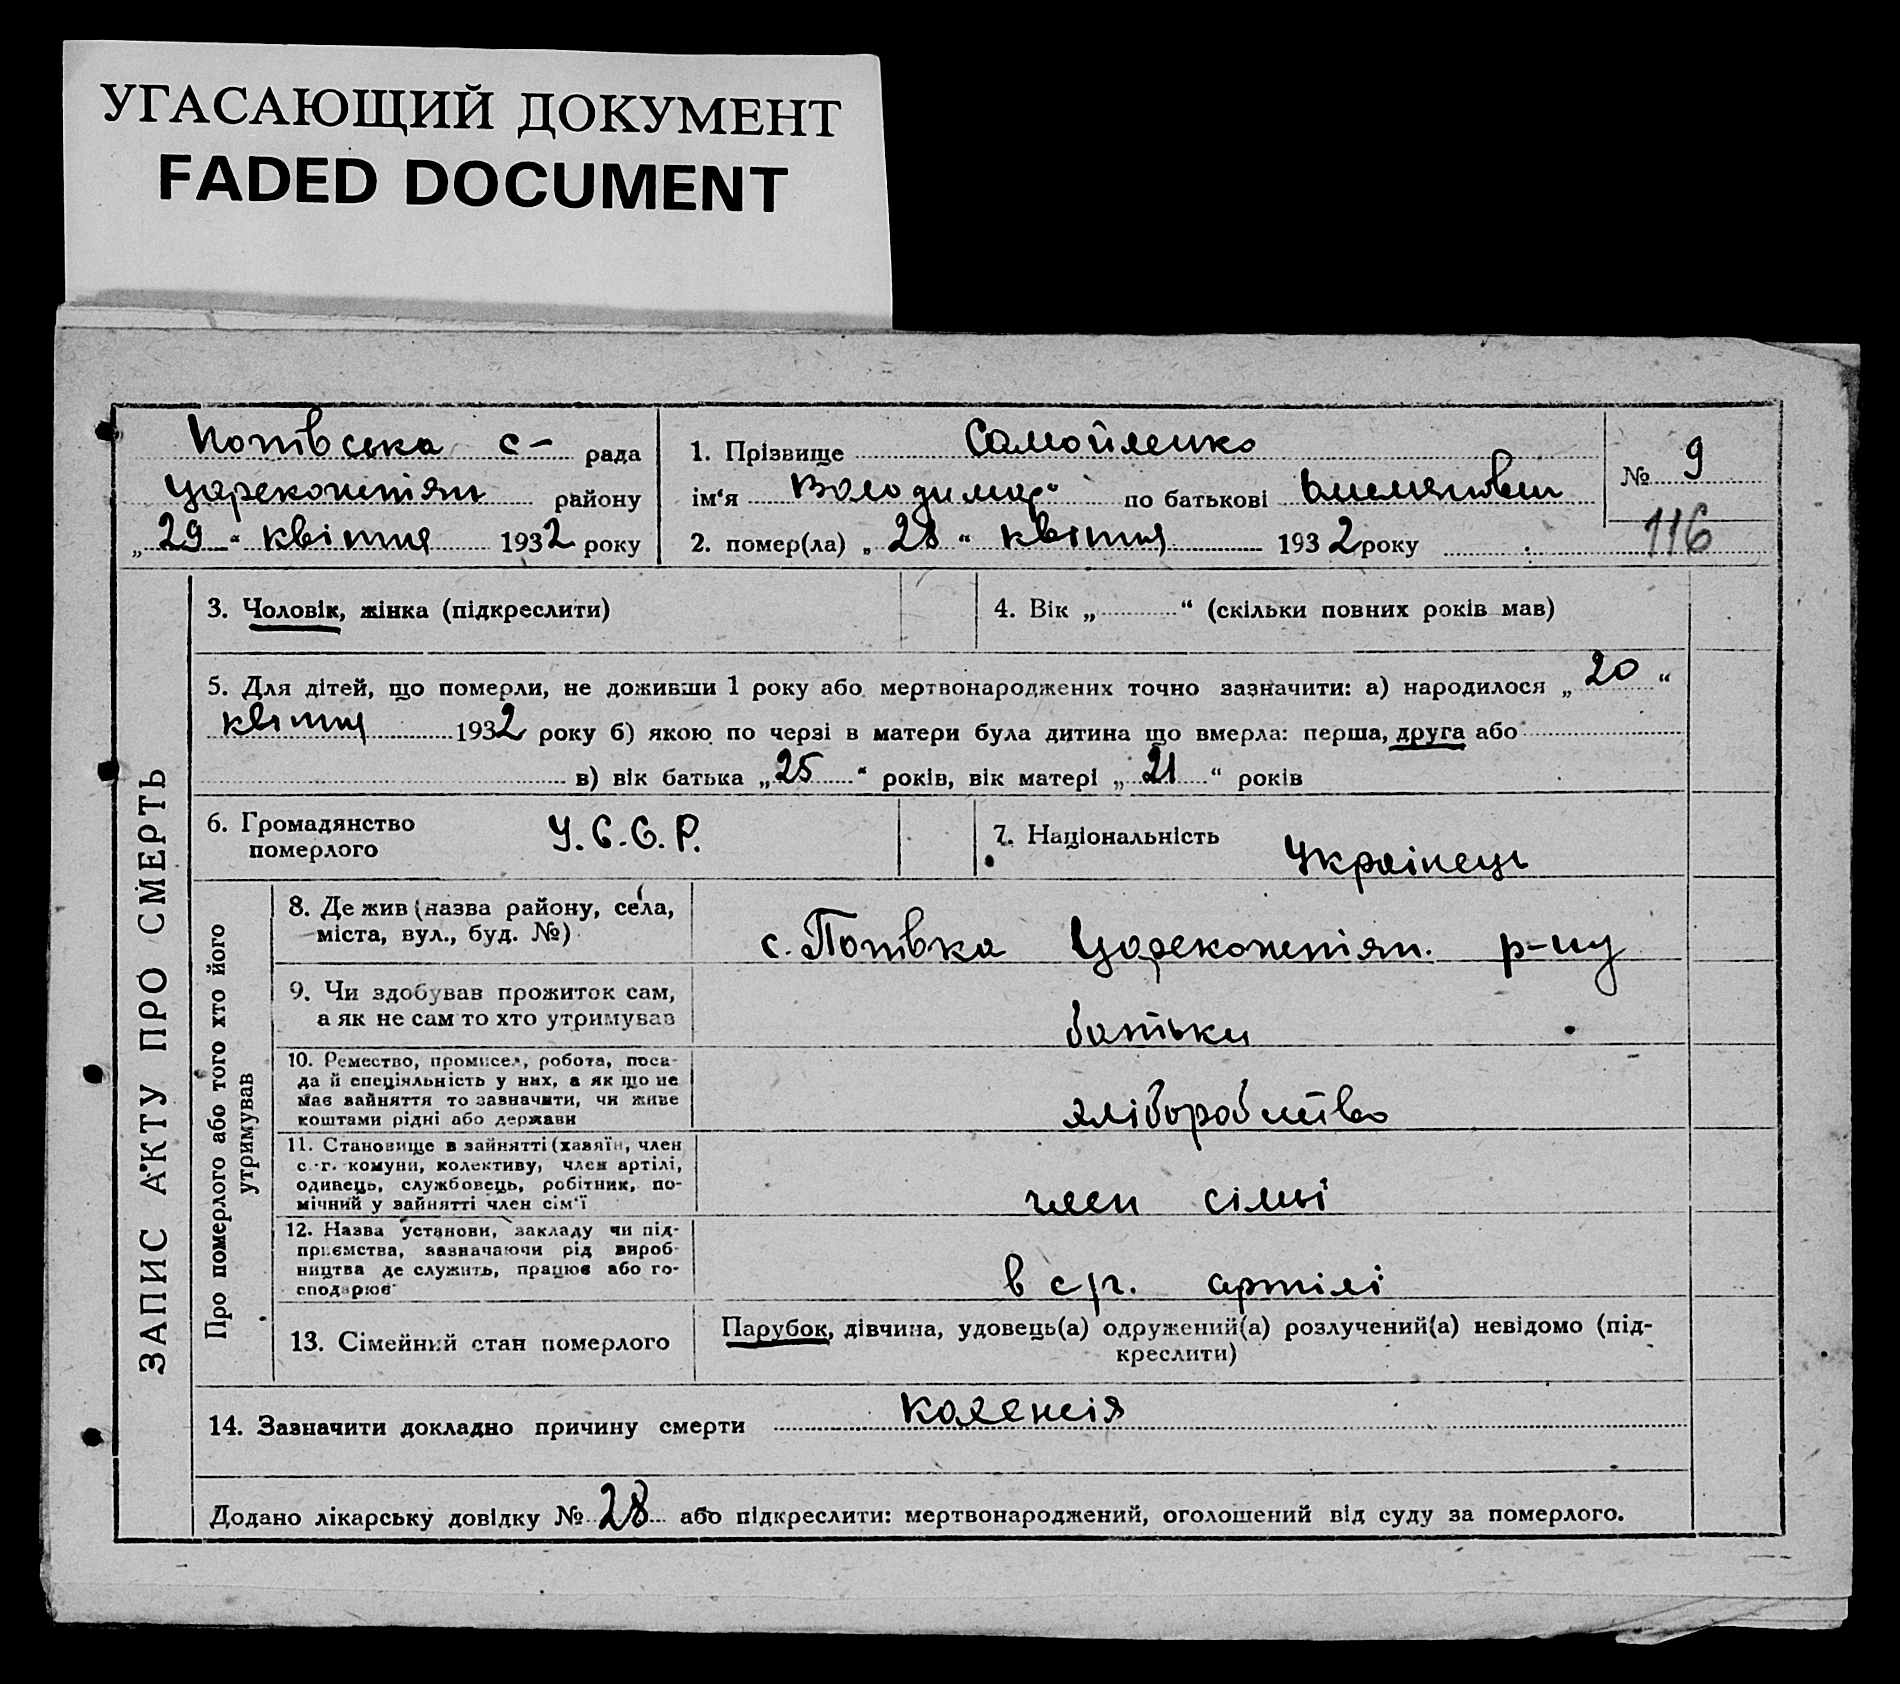 УГАСАЮЩИЙ ДОКУМЕНТ
FADED DOCUMENT
Потівська с- рада
району
„29“ квітня 1932 року
1. Прізвище Самойленко
ім'я Володимир по батькові
2. помер(ла) „28“ квітня 1932 року
№ 9
116
ЗАПИС АКТУ ПРО СМЕРТЬ
3. Чоловік, жінка (підкреслити)
4. Вік „ “ (скільки повних років мав)
5. Для дітей, що померли, не доживши 1 року або мертвонароджених точно зазначити: а) народилося „20“
квітня 1932 року б) якою по черзі в матери була дитина що вмерла: перша, друга або
в) вік батька „25“ років, вік матері „21“ років
6. Громадянство
померлого
У.С.С.Р.
7. Національність
Українець
Про померлого або того хто його
утримував
8. Де жив (назва району, села,
міста, вул., буд. №)
с. Потівка р-ну
9. Чи здобував прожиток сам,
а як не сам то хто утримував
батьки
10. Ремество, промисел, робота, поса-
да й спеціяльність у них, а як що не
має зайняття то зазначити, чи живе
коштами рідні або держави
хліборобство
11. Становище в зайнятті (хазяїн, член
с.-г. комуни, колективу, член артілі,
одинець, службовець, робітник, по-
мічний у зайнятті член сім'ї
член сімьї
12. Назва установи, закладу чи під-
приємства, зазначаючи рід вироб-
ництва де служить, працює або го-
сподарює
в с/г. артілі
13. Сімейний стан померлого
Парубок, дівчина, удовець(а) одружений(а) розлучений(а) невідомо (під-
креслити)
14. Зазначити докладно причину смерти
Додано лікарську довідку № 28 або підкреслити: мертвонароджений, оголошений від суду за померлого.